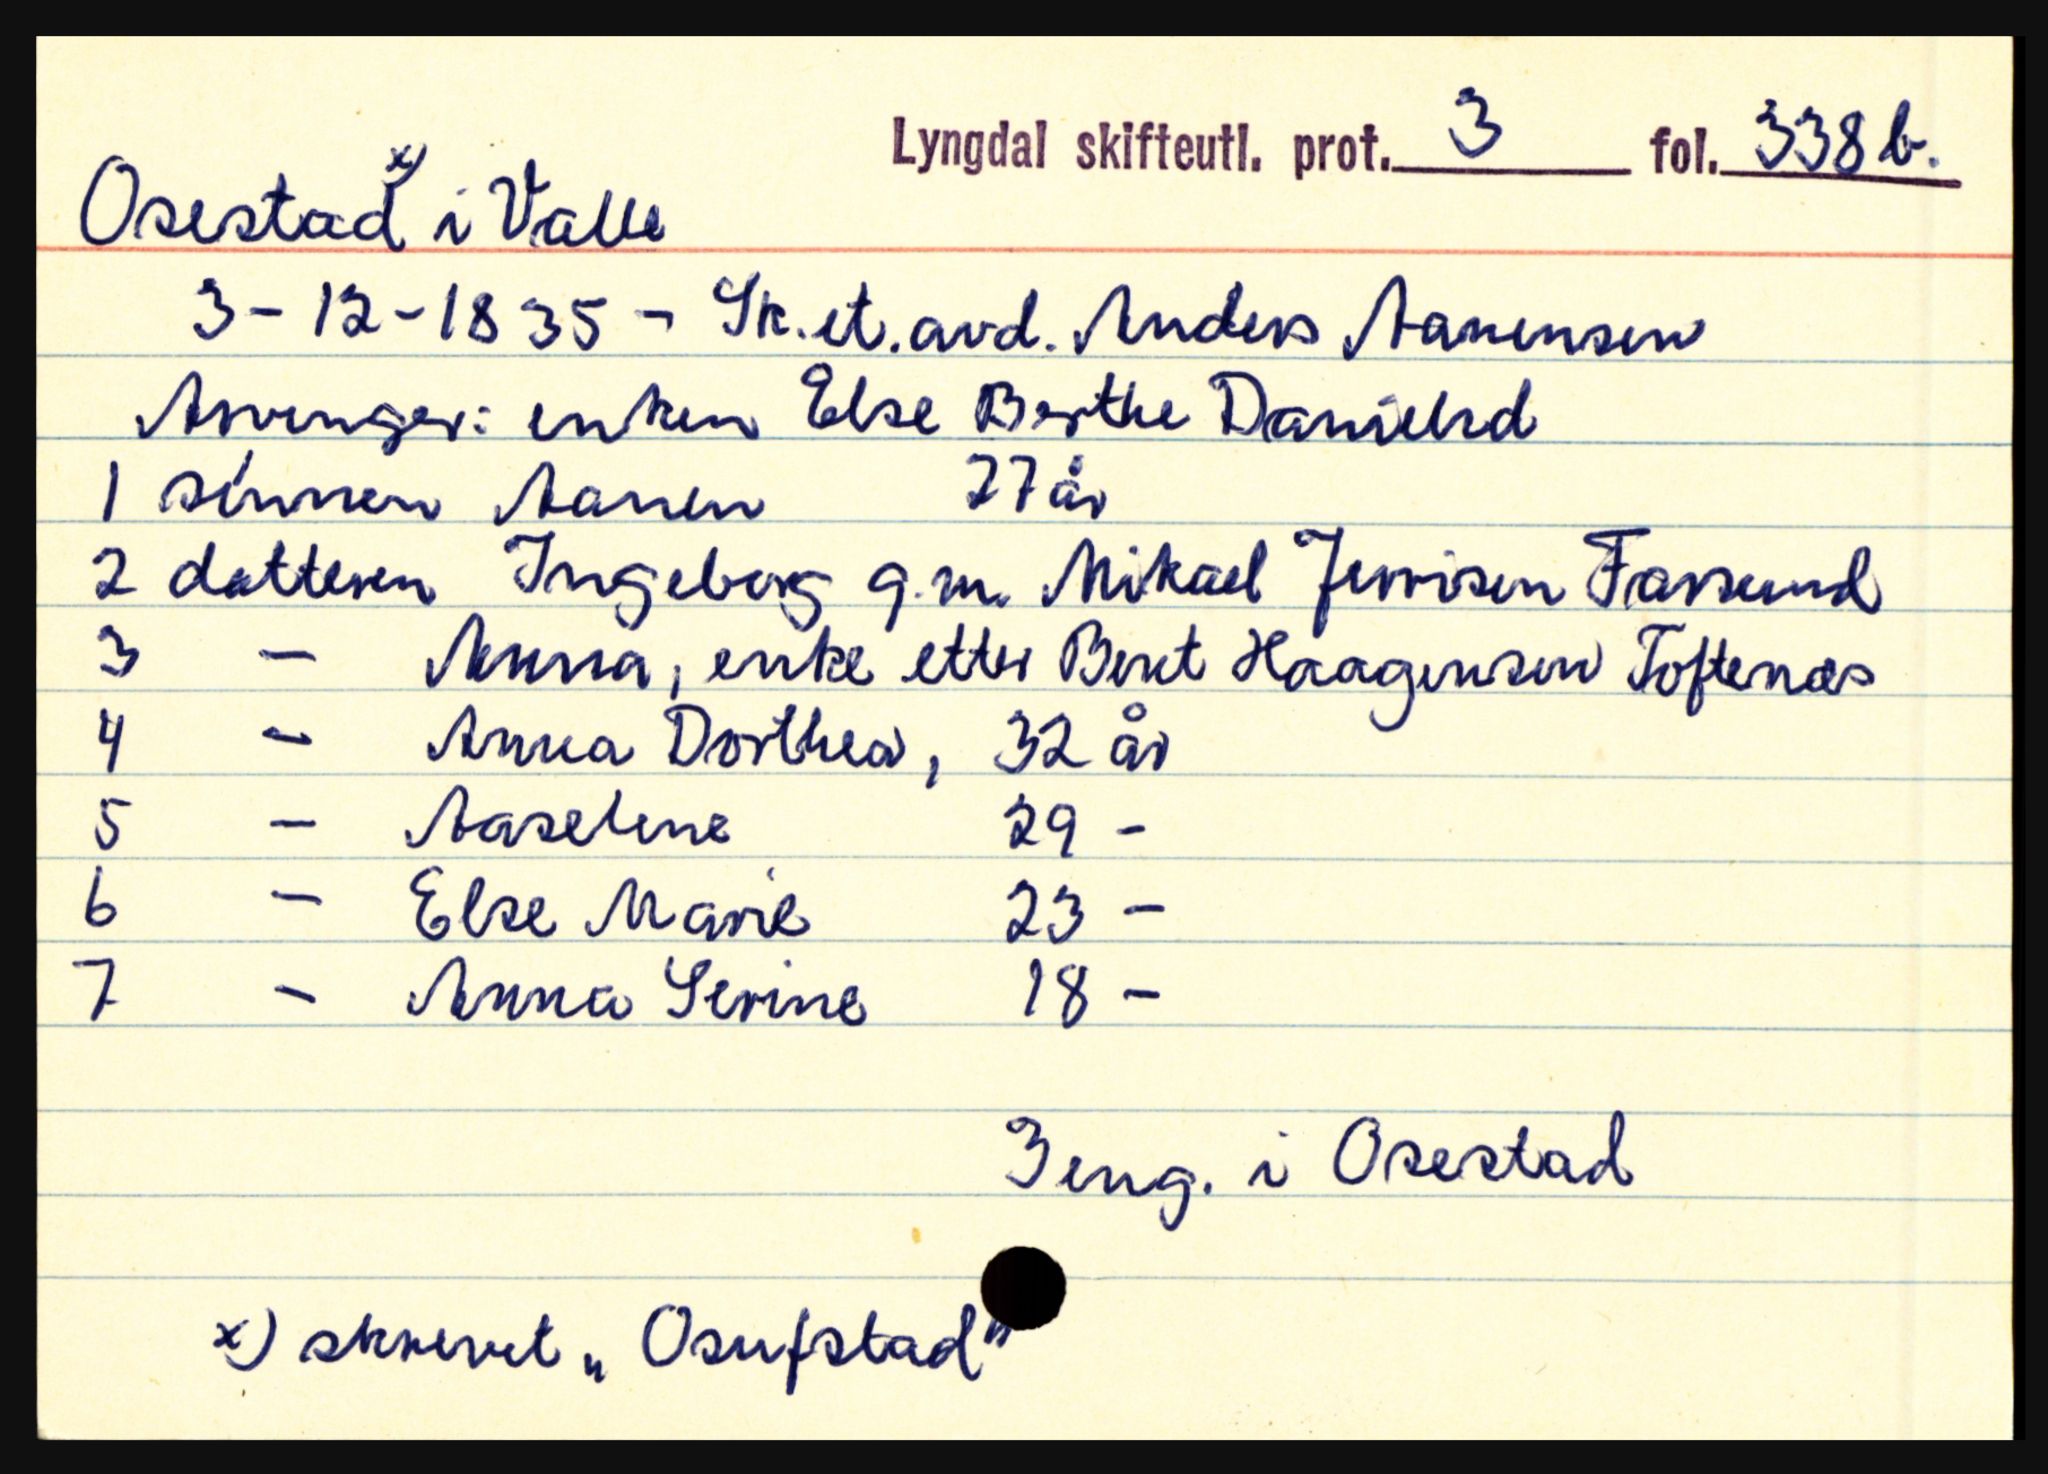 Lyngdal skifteutl. prot. 3 fol. 338 b.
Osestad x) i Valle
3-12-1835 - Sk. et. avd. Anders Aanensen
Arvinger: enken Else Berthe Danielsd
1 sönnen Aanen 27 år
2 datteren Ingeborg g.m. Mikael Jerrisen Farsund
3 - Anna, enke etter Bent Haagensen Toftenæs
4 - Anna Dorthea, 32 år
5 - Aaselene 29 -
6 - Else Marie 23 -
7 - Anna Serine 18 -
3 eng. i Osestad
x) skrevet „Osufstad"